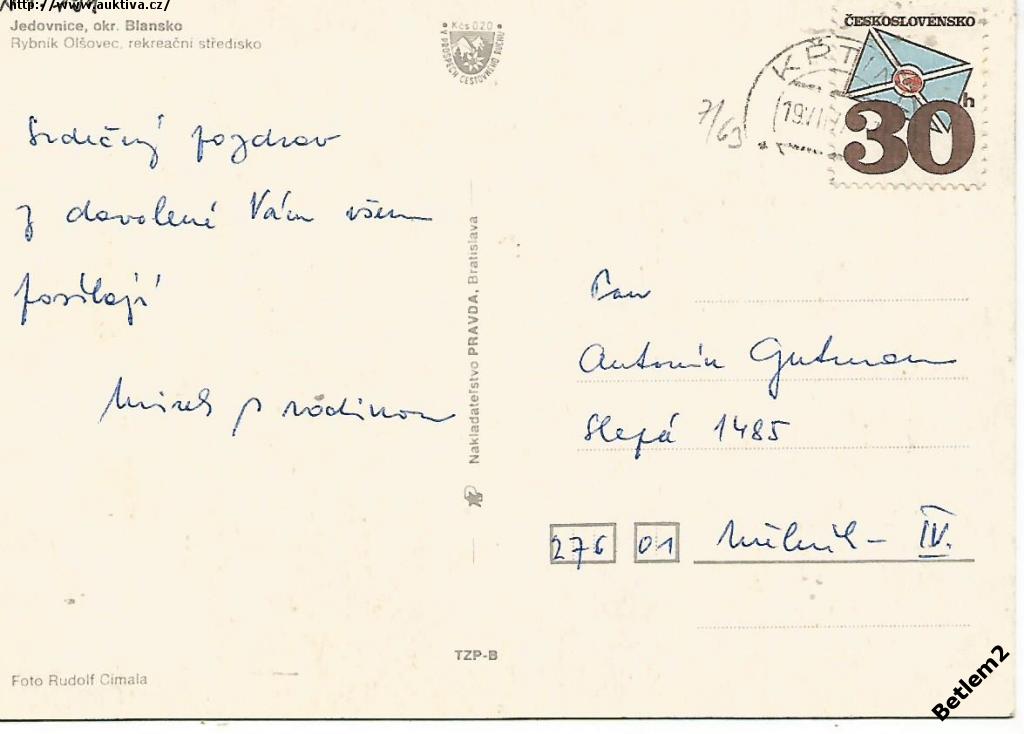 http://www.auktiva.cz/
Jedovnice, okr. Blansko
Rybník Olšovec, rekreační středisko
• Kčs 020 •
V PROSPĚCH CESTOVNÍHO RUCHU
ČESKOSLOVENSKO
30h
KŘTIN
19.VII
7/63
Srdečný pozdrav
z dovolené Vám všem
posílají
Mirek s rodinou
Nakladateľstvo PRAVDA, Bratislava
Pan
Antonín Gutman
Slepá 1485
276 01 Mělník - IV.
TZP-B
Foto Rudolf Cimala
Betlem2